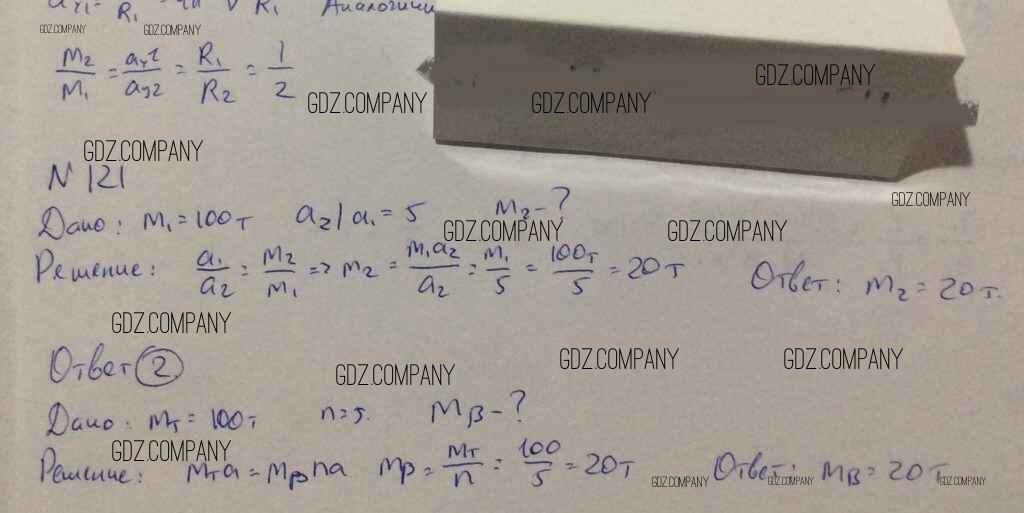 R₁ Аналогичн
GDZ.COMPANY GDZ.COMPANY
m₂/m₁ = a₁2/a₂2 = R₁/R₂ = 1/2
GDZ.COMPANY GDZ.COMPANY GDZ.COMPANY
GDZ.COMPANY
N 121
GDZ.COMPANY
Дано: m₁ = 100т a₂/a₁ = 5 m₂ - ?
GDZ.COMPANY GDZ.COMPANY
Решение: a₁/a₂ = m₂/m₁ => m₂ = m₁a₂/a₂ = m₁/5 = 100т/5 = 20т Ответ: m₂ = 20т.
GDZ.COMPANY
Ответ 2
GDZ.COMPANY GDZ.COMPANY GDZ.COMPANY
Дано: mт = 100т n=5. mв - ?
GDZ.COMPANY
Решение: mтa = mвna mв = mт/n = 100/5 = 20т Ответ: mв = 20т
GDZ.COMPANY GDZ.COMPANY GDZ.COMPANY